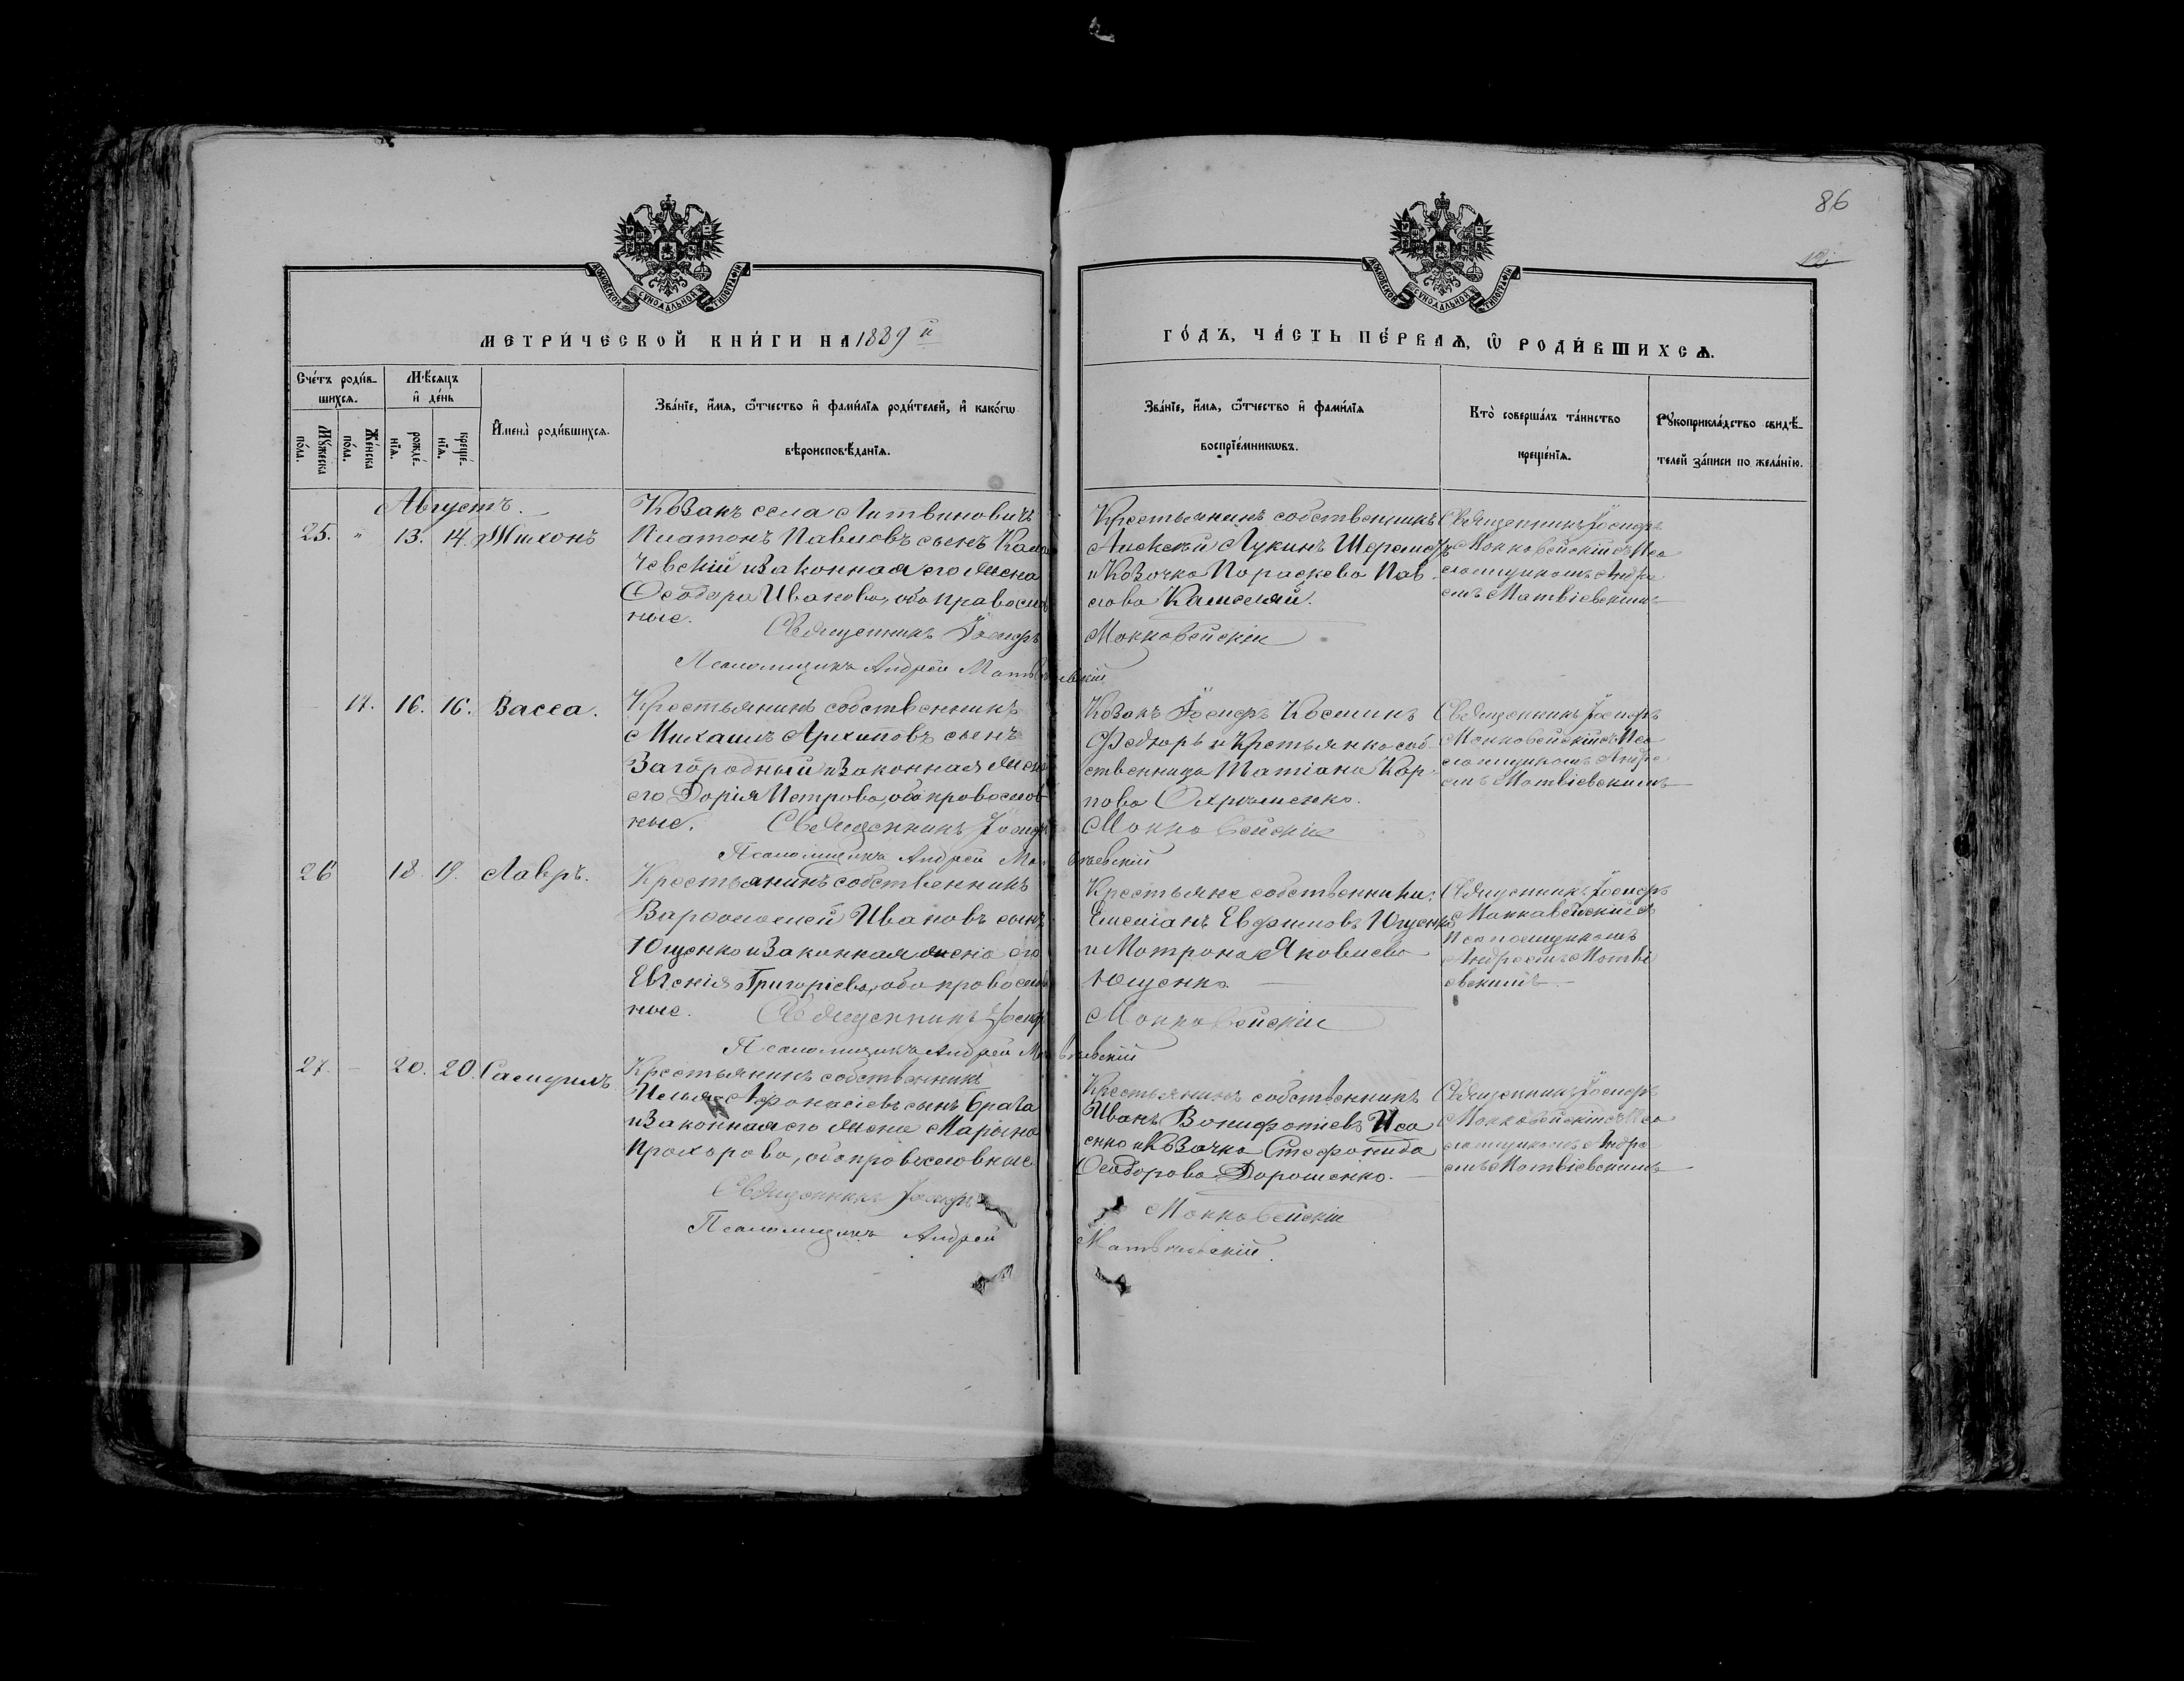 86
МОСКОВСКОЙ СѴНОДАЛЬНОЙ ТИПОГРАФІИ
МОСКОВСКОЙ СѴНОДАЛЬНОЙ ТИПОГРАФІИ
МЕТРИ́ЧЕСКОЙ КНИ́ГИ НА 1889 й
ГО́ДЪ, ЧА́СТЬ ПЕ́РВАѦ, Ѡ РОДИ́ВШИХСѦ.
Сче́тъ роди́в-
шихсѧ.
Мѣ́сѧцъ
и҆ де́нь
Мꙋ́жеска
по́ла.
Же́нска
по́ла.
рожде́-
нїѧ.
креще́-
нїѧ.
И҆мена̀ роди́вшихсѧ.
Зва́нїе, и҆́мѧ, ѻ҆́тчество и҆ фами́лїѧ роди́телей, и҆ како́гѡ
вѣроисповѣ́данїѧ.
Зва́нїе, и҆́мѧ, ѻ҆́тчество и҆ фами́лїѧ
воспрїе́мникѡвъ.
Кто̀ соверша́лъ та́инство
креще́нїѧ.
Рꙋкоприкла́дство свидѣ́-
телей за́писи по жела́нїю.
Августъ.
25. " 13. 14. Тихонъ
Козакъ села Литвиновичъ
Платонъ Павловъ сынъ
чевскій и законная его жена
Ѳеодора Иванова, оба православ
ные. Священникъ Іосифъ
Псаломщикъ Андрей Матвѣевскій
Крестьянинъ собственникъ
Алексѣй Лукинъ
и Козачка Параскева Пав
лова
Маккавейскій
Священникъ Іосифъ
Маккавейскій съ Пса
ломщикомъ Андре
емъ Матвіевскимъ
17. 16. 16. Васса.
Крестьянинъ собственникъ
Михаилъ Архиповъ сынъ
Загородный и законная жена
его Дарія Петрова, оба православ
ные. Священникъ Іосифъ
Псаломщикъ Андрей Матвѣевскій
Козакъ Іосифъ Косминъ
и Крестьянка соб
ственница Татіана Кар-
пова
Маккавейскій
Священникъ Іосифъ
Маккавейскій съ Пса
ломщикомъ Андре
емъ Матвіевскимъ
26 18. 19. Лавръ.
Крестьянинъ собственникъ
Варѳоломей Ивановъ сынъ
Ющенко и законная жена его
Евгенія Григоріева, оба православ
ные. Священникъ Іосифъ
Псаломщикъ Андрей Матвѣевскій
Крестьяне собственники:
Емеліанъ Евфимовъ Ющенко
и Матрона Яковлева
Ющенко.
Маккавейскій
Священникъ Іосифъ
Маккавейскій съ
Псаломщикомъ
Андреемъ Матві
евскимъ.
27. — 20. 20. Самуилъ.
Крестьянинъ собственникъ
Илья Афанасіевъ сынъ Брага
и законная его жена Марина
Прохорова, оба православные
Священникъ Іосифъ
Псаломщикъ Андрей
Крестьянинъ собственникъ
Иванъ Вонифатіевъ Иса
енко и Козачка Стефанида
Ѳеодорова Дорошенко.
Маккавейскій
Матвѣевскій.
Священникъ Іосифъ
Маккавейскій съ Пса
ломщикомъ Андре
емъ Матвіевскимъ